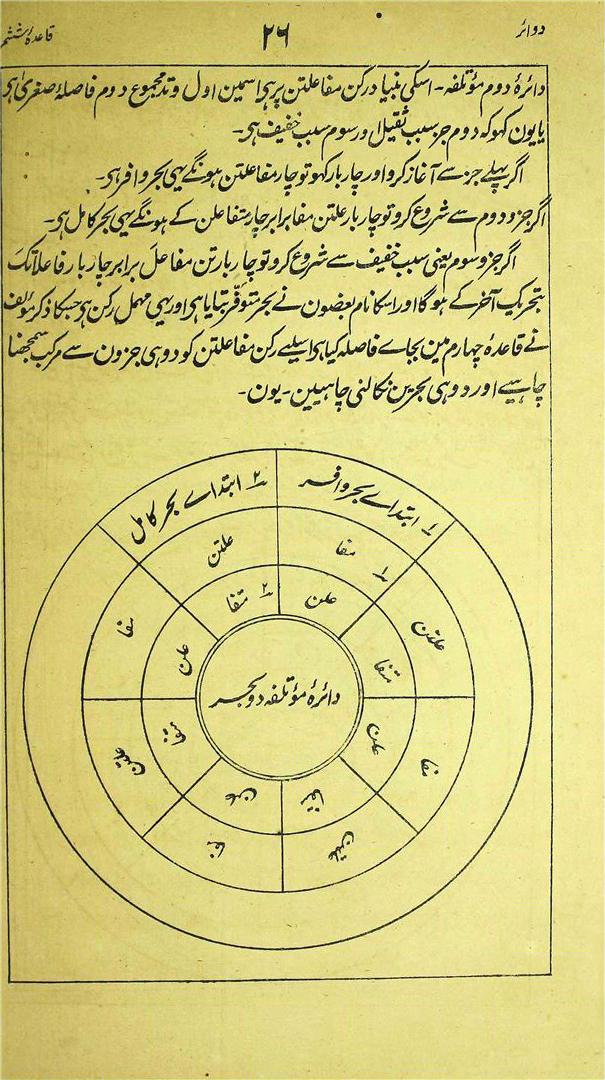 دوائر
۲۶
قاعدۂ ششم
دائرۂ دوم مؤتلفہ۔ اسکی بنیاد رکن مفاعلتن پر ہی اسمین اول وتد مجموع دوم فاصلۂ صغریٰ ہی
یا یون کہو کہ دوم جز سبب ثقیل اور سوم سبب خفیف ہی۔
اگر پہلے جز سے آغاز کرو اور چار بار کہو تو چار مفاعلتن ہونگے یہی بحر وافر ہی۔
اگر جزو دوم سے شروع کرو تو چار بار علتن مفا برابر چار متفاعلن کے ہونگے یہی بحر کامل ہی۔
اگر جزو سوم یعنی سبب خفیف سے شروع کرو تو چار بار تن مفاعل برابر چار بار فاعلاتک
بتحریک آخر کے ہوگا اور اسکا نام بعضون نے بحر متوفّر بتایا ہی اور یہی مہمل رکن ہی جسکا ذکر مؤلف
نے قاعدۂ چہارم مین بجاے فاصلہ کیا ہی اسلیے رکن مفاعلتن کو دو ہی جزون سے مرکب سمجھنا
چاہیے اور دو ہی بحرین نکالنی چاہیین۔ یون۔
۱ ابتداے بحر وافر
۲ ابتداے بحر کامل
۱ مفا
علتن
مفا
علتن
مفا
علتن
مفا
علتن
۲ متفا
علن
متفا
علن
متفا
علن
متفا
علن
دائرۂ مؤتلفہ دو بحر